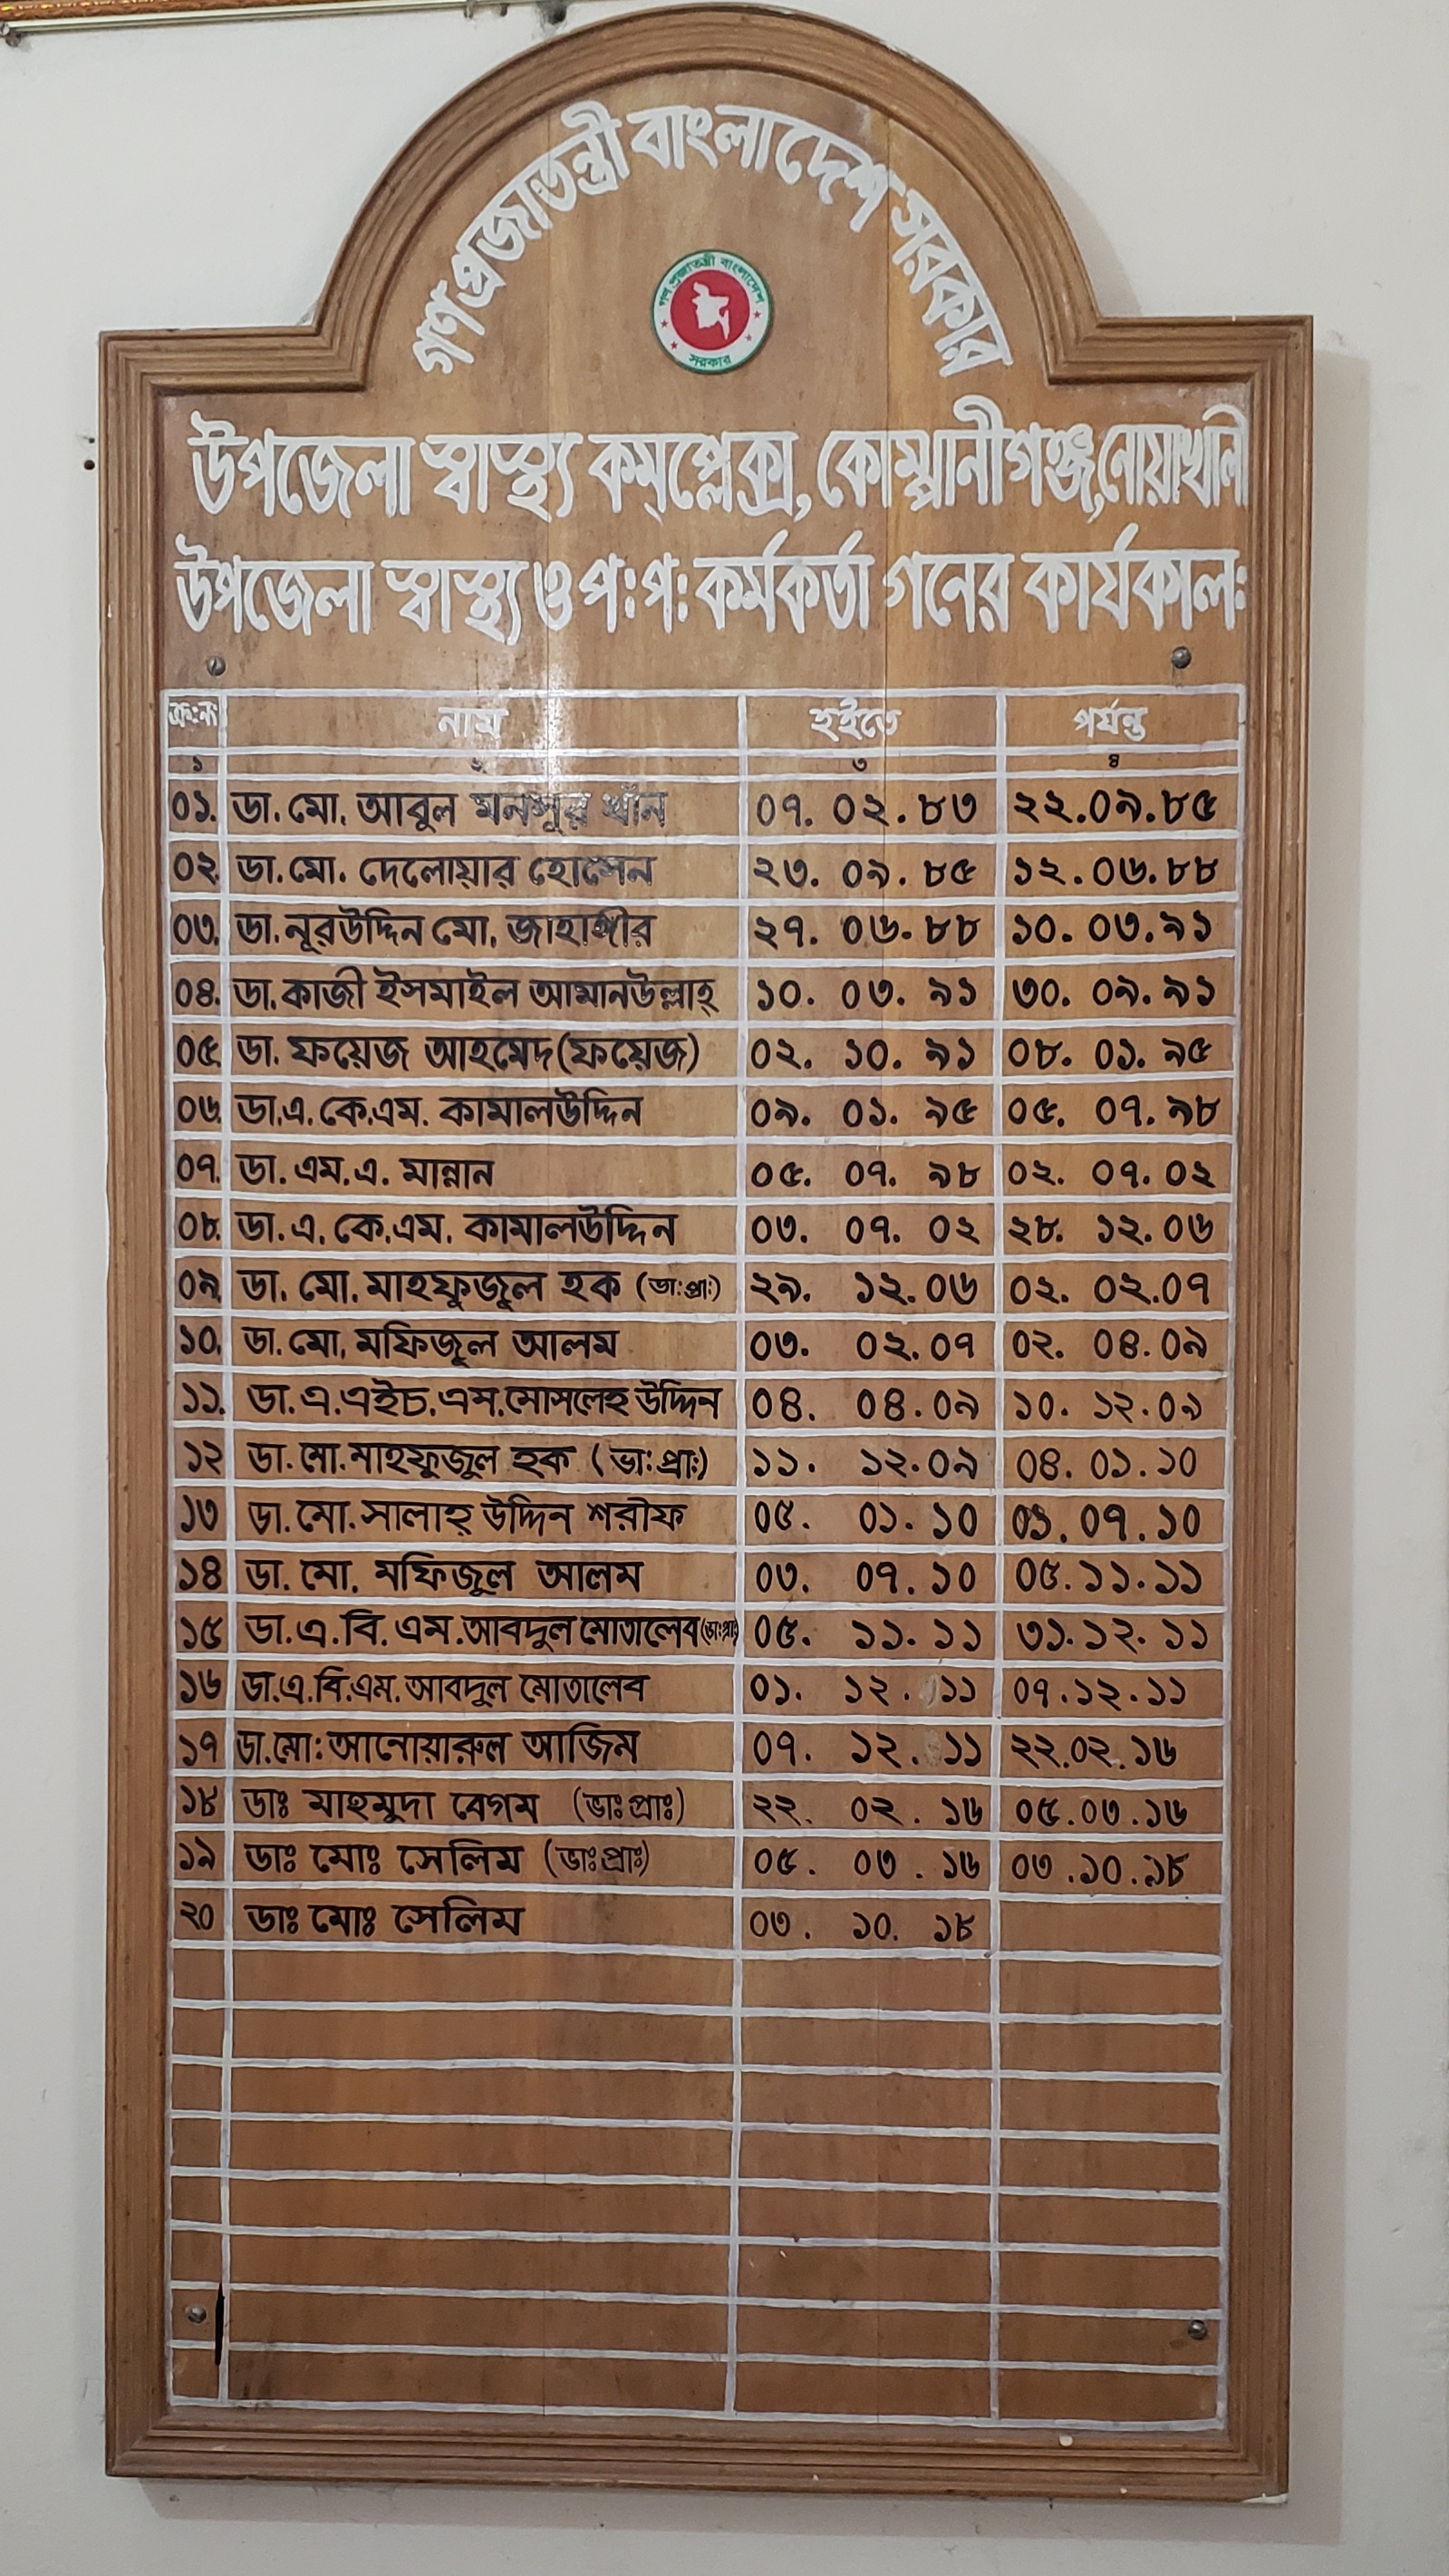 গণপ্রজাতন্ত্রী বাংলাদেশ সরকার
গণ প্রজাতন্ত্রী বাংলাদেশ
সরকার
উপজেলা স্বাস্থ্য কমপ্লেক্স, কোম্পানীগঞ্জ,নোয়াখালী
উপজেলা স্বাস্থ্য ও প:প: কর্মকর্তা গনের কার্যকাল:
ক্র:নং নাম হইতে পর্যন্ত
১ ২ ৩ ৪
০১. ডা. মো. আবুল মনসুর খাঁন ০৭. ০২. ৮৩ ২২.০৯.৮৫
০২. ডা. মো. দেলোয়ার হোসেন ২৩. ০৯. ৮৫ ১২.০৬.৮৮
০৩. ডা. নূরউদ্দিন মো. জাহাঙ্গীর ২৭. ০৬. ৮৮ ১০. ০৩. ৯১
০৪. ডা. কাজী ইসমাইল আমানউল্লাহ্ ১০. ০৩. ৯১ ৩০. ০৯. ৯১
০৫. ডা. ফয়েজ আহমেদ(ফয়েজ) ০২. ১০. ৯১ ০৮. ০১. ৯৫
০৬. ডা.এ. কে.এম. কামালউদ্দিন ০৯. ০১. ৯৫ ০৫. ০৭. ৯৮
০৭. ডা. এম. এ. মান্নান ০৫. ০৭. ৯৮ ০২. ০৭. ০২
০৮. ডা. এ. কে.এম. কামালউদ্দিন ০৩. ০৭. ০২ ২৮. ১২. ০৬
০৯. ডা. মো. মাহফুজুল হক (ভা:প্রা:) ২৯. ১২. ০৬ ০২. ০২.০৭
১০. ডা. মো. মফিজুল আলম ০৩. ০২. ০৭ ০২. ০৪. ০৯
১১. ডা. এ.এইচ.এম.মোসলেহ উদ্দিন ০৪. ০৪. ০৯ ১০. ১২. ০৯
১২ ডা. মো. মাহফুজুল হক (ভা:প্রা:) ১১. ১২. ০৯ ০৪. ০১. ১০
১৩ ডা. মো. সালাহ্ উদ্দিন শরীফ ০৫. ০১. ১০ ০১. ০৭. ১০
১৪ ডা. মো. মফিজুল আলম ০৩. ০৭. ১০ ০৫. ১১. ১১
১৫ ডা. এ. বি. এম. আবদুল মোতালেব(ভা:প্রা:) ০৫. ১১. ১১ ৩১. ১২. ১১
১৬ ডা.এ.বি.এম. আবদুল মোতালেব ০১. ১২. ১১ ০৭.১২.১১
১৭ ডা.মো: আনোয়ারুল আজিম ০৭. ১২. ১১ ২২.০২.১৬
১৮ ডাঃ মাহমুদা বেগম (ভাঃপ্রাঃ) ২২. ০২. ১৬ ০৫.০৩.১৬
১৯ ডাঃ মোঃ সেলিম (ভাঃপ্রাঃ) ০৫. ০৩. ১৬ ০৩.১০.১৮
২০ ডাঃ মোঃ সেলিম ০৩. ১০. ১৮